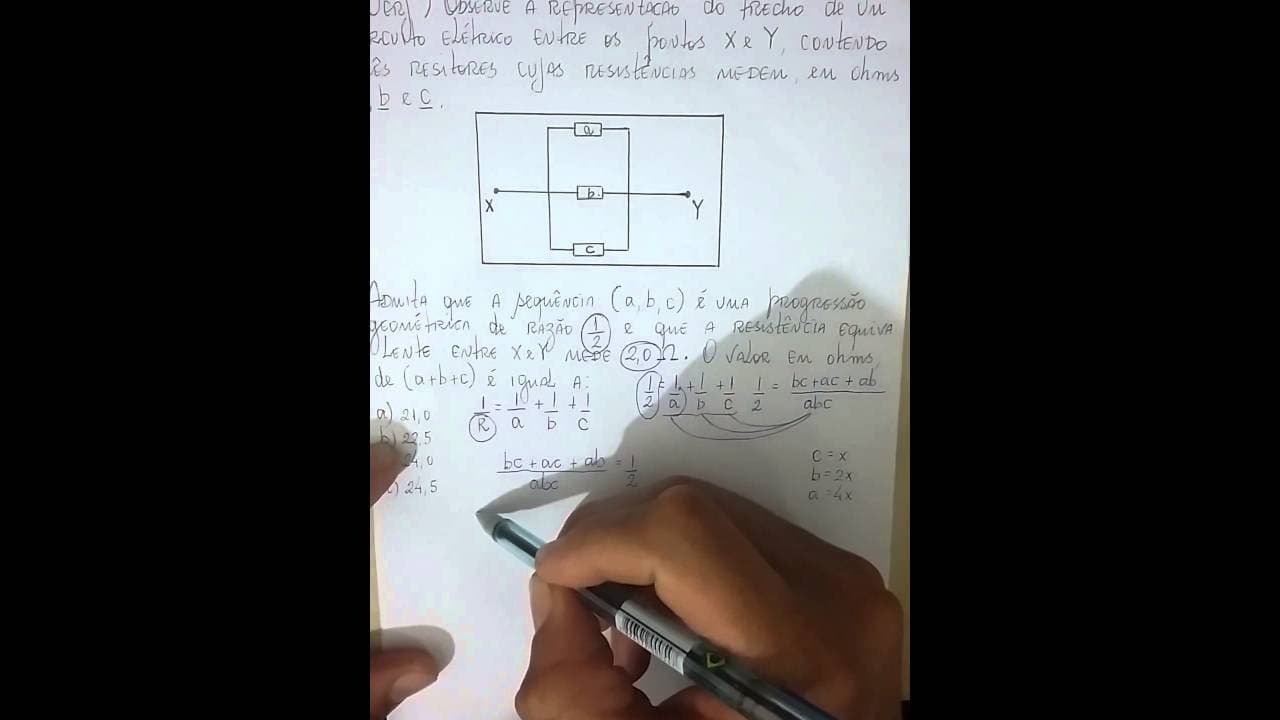 UERJ) OBSERVE A REPRESENTAÇÃO do TRECHO de UM
RCUITO ELÉTRICO ENTRE OS pontos X e Y, CONTENDO
ÊS RESITORES CUJAS RESISTÊNCIAS MEDEM, em ohms
, b e c.
a
X b Y
c
ADMITA QUE A SEQUÊNCIA (a, b, c) é UMA PROGRESSÃO
GEOMÉTRICA de RAZÃO 1/2 e QUE A RESISTÊNCIA EQUIVA
LENTE ENTRE X e Y MEDE 2,0 Ω. O VALOR EM ohms,
de (a+b+c) é IGUAL A:
a) 21,0
b) 22,5
24,0
) 24,5
1/R = 1/a + 1/b + 1/c
1/2 = 1/a + 1/b + 1/c
1/2 = bc + ac + ab / abc
bc + ac + ab / abc = 1/2
c = x
b = 2x
a = 4x